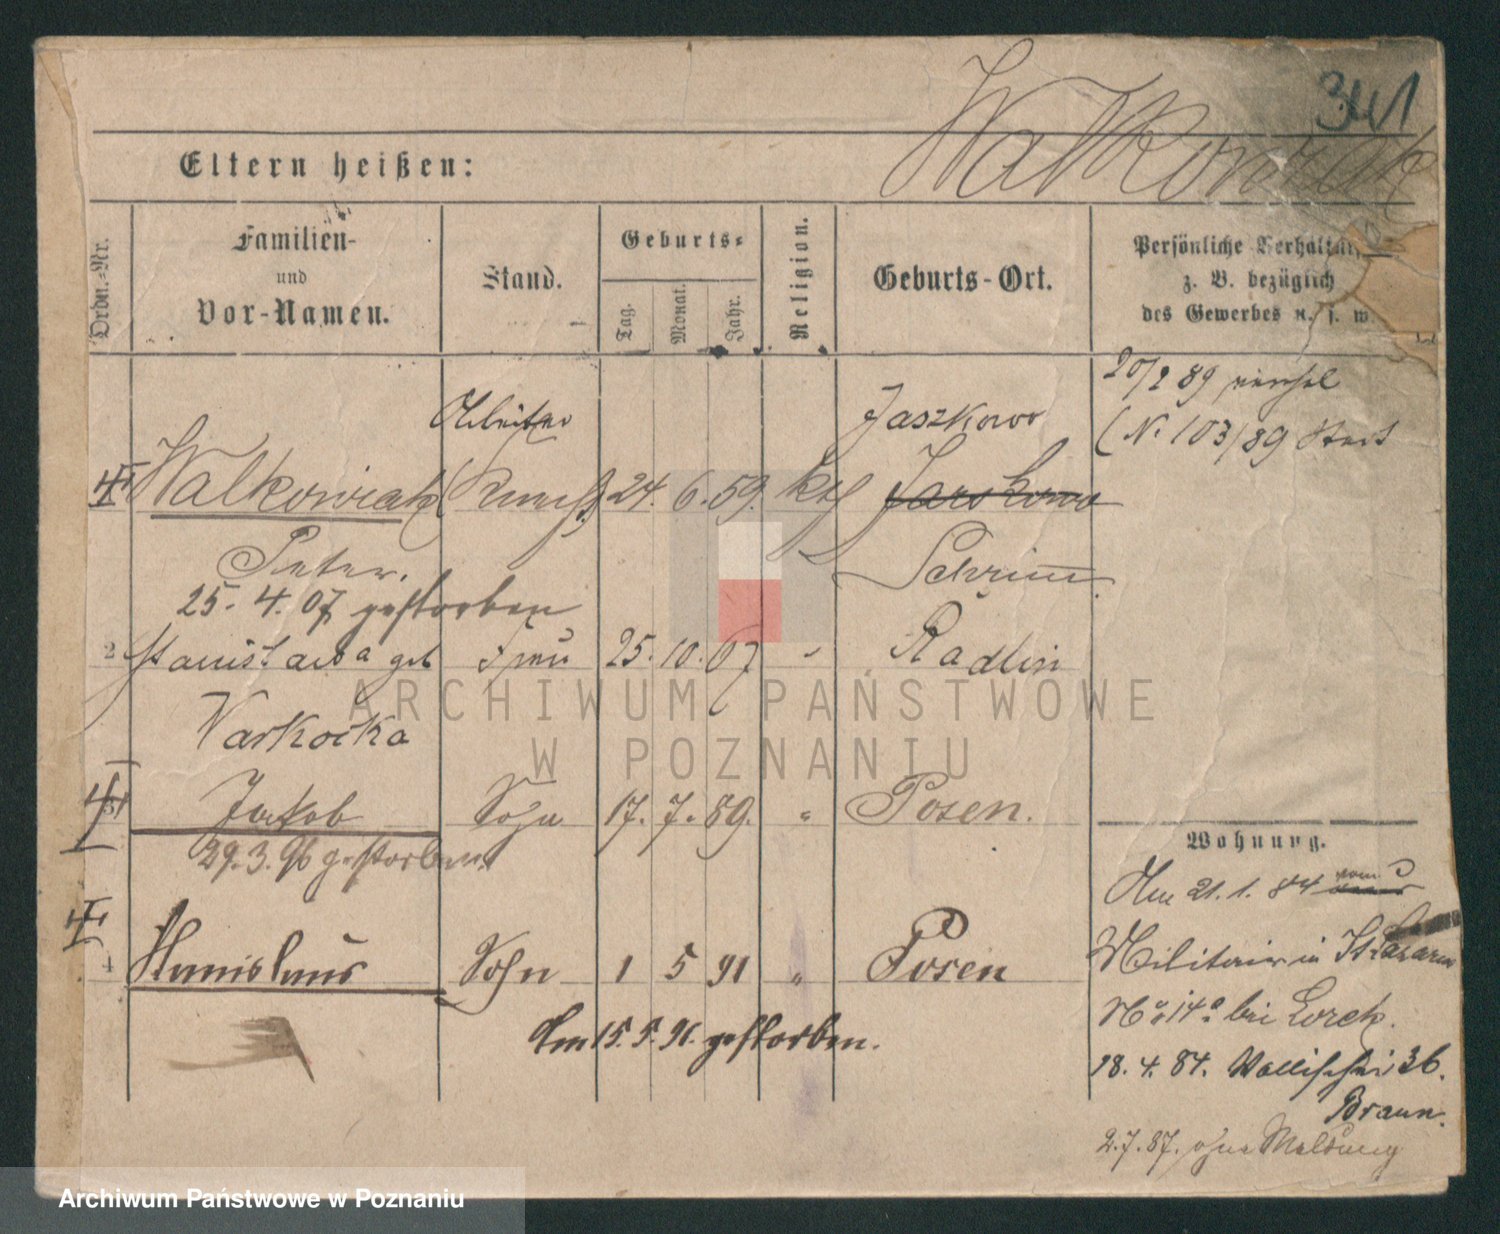 341
Walkowiak
Eltern heißen:
Ordn.-Nr.
Familien-
und
Vor-Namen.
Stand.
Geburts-
Tag.
Monat.
Jahr.
Religion.
Geburts-Ort.
Persönliche
z. B. bezüglich
des Gewerbes u. s. w.
20/2 89
(N. 103/89
Arbeiter
Jaszkowo
Walkowiak 24. 6. 59. kth Jarskowo
Peter. Schrimm
25. 4. 07 gestorben
2 Stanislawa geb Frau 25. 10. 67 " Radlin
Warkocka
3 Jakob Sohn 17. 7. 89. " Posen.
29. 3. 96 gestorben
4 Stanislaus Sohn 1 5 91 " Posen
Am 15. 5. 91. gestorben.
Wohnung.
Am 21. 1. 84 vom
Militair in St Lazarus
No 14a bei Lorek.
18. 4. 84. Wallischei 36.
Braun.
2. 7. 87. ohne Meldung
ARCHIWUM PAŃSTWOWE
W POZNANIU
Archiwum Państwowe w Poznaniu